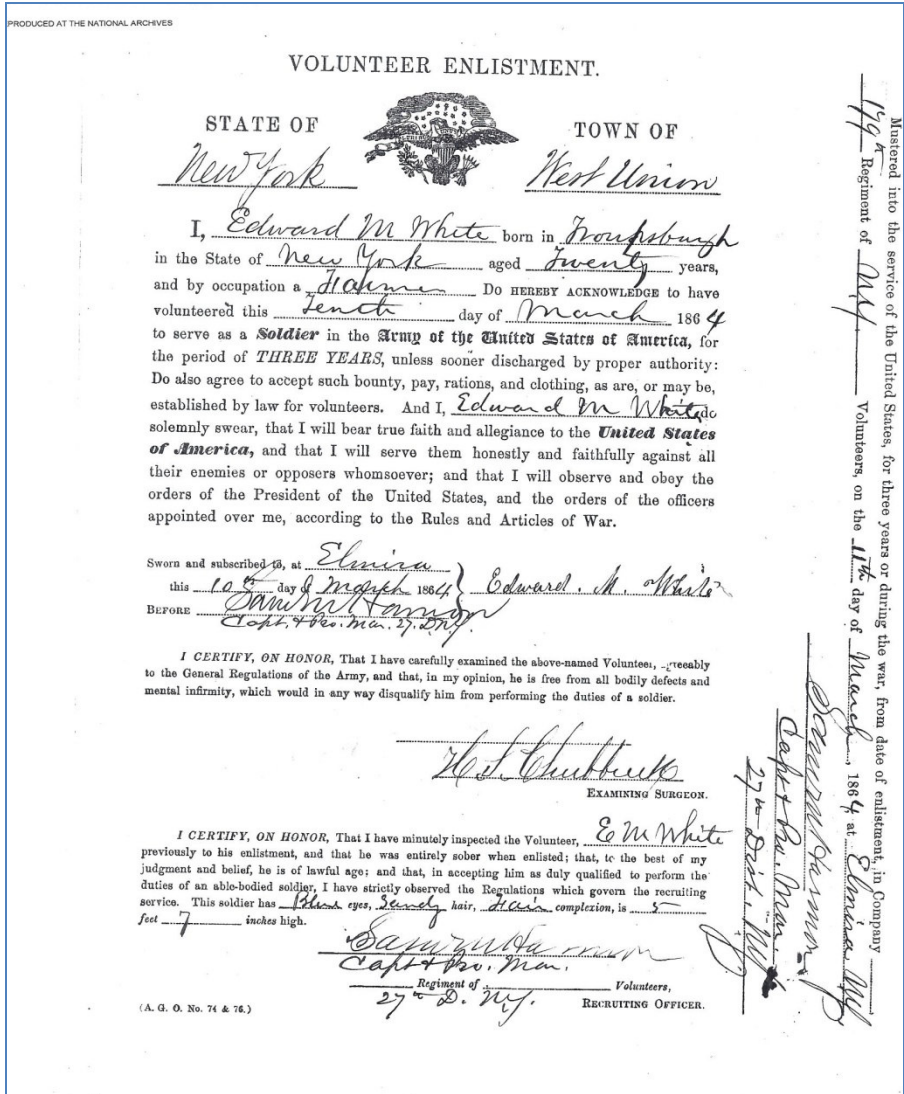 PRODUCED AT THE NATIONAL ARCHIVES
VOLUNTEER ENLISTMENT.
STATE OF
TOWN OF
New York
West Union
I, Edward M White born in Troupsburgh
in the State of New York aged Twenty years,
and by occupation a Farmer Do HEREBY ACKNOWLEDGE to have
volunteered this Tenth day of March 1864
to serve as a Soldier in the Army of the United States of America, for
the period of THREE YEARS, unless sooner discharged by proper authority:
Do also agree to accept such bounty, pay, rations, and clothing, as are, or may be,
established by law for volunteers. And I, Edward M White do
solemnly swear, that I will bear true faith and allegiance to the United States
of America, and that I will serve them honestly and faithfully against all
their enemies or opposers whomsoever; and that I will observe and obey the
orders of the President of the United States, and the orders of the officers
appointed over me, according to the Rules and Articles of War.
Sworn and subscribed to, at Elmira
this 10th day of March 1864 } Edward. M. White
BEFORE
Capt. & Pro. Mar. 27. D. N.Y.
I CERTIFY, ON HONOR, That I have carefully examined the above-named Volunteer, agreeably
to the General Regulations of the Army, and that, in my opinion, he is free from all bodily defects and
mental infirmity, which would in any way disqualify him from performing the duties of a soldier.
H S Chubbuck
EXAMINING SURGEON.
I CERTIFY, ON HONOR, That I have minutely inspected the Volunteer, E M White
previously to his enlistment, and that he was entirely sober when enlisted; that, to the best of my
judgment and belief, he is of lawful age; and that, in accepting him as duly qualified to perform the
duties of an able-bodied soldier, I have strictly observed the Regulations which govern the recruiting
service. This soldier has Blue eyes, Sandy hair, Fair complexion, is 5
feet 7 inches high.
Capt & Pro. Mar.
Regiment of Volunteers,
27th D. N.Y. RECRUITING OFFICER.
(A. G. O. No. 74 & 76.)
Mustered into the service of the United States, for three years or during the war, from date of enlistment, in Company
179th Regiment of NY Volunteers, on the 11th day of March, 1864 at Elmira NY
Capt & Pro. Mar.
27th Dist. NY